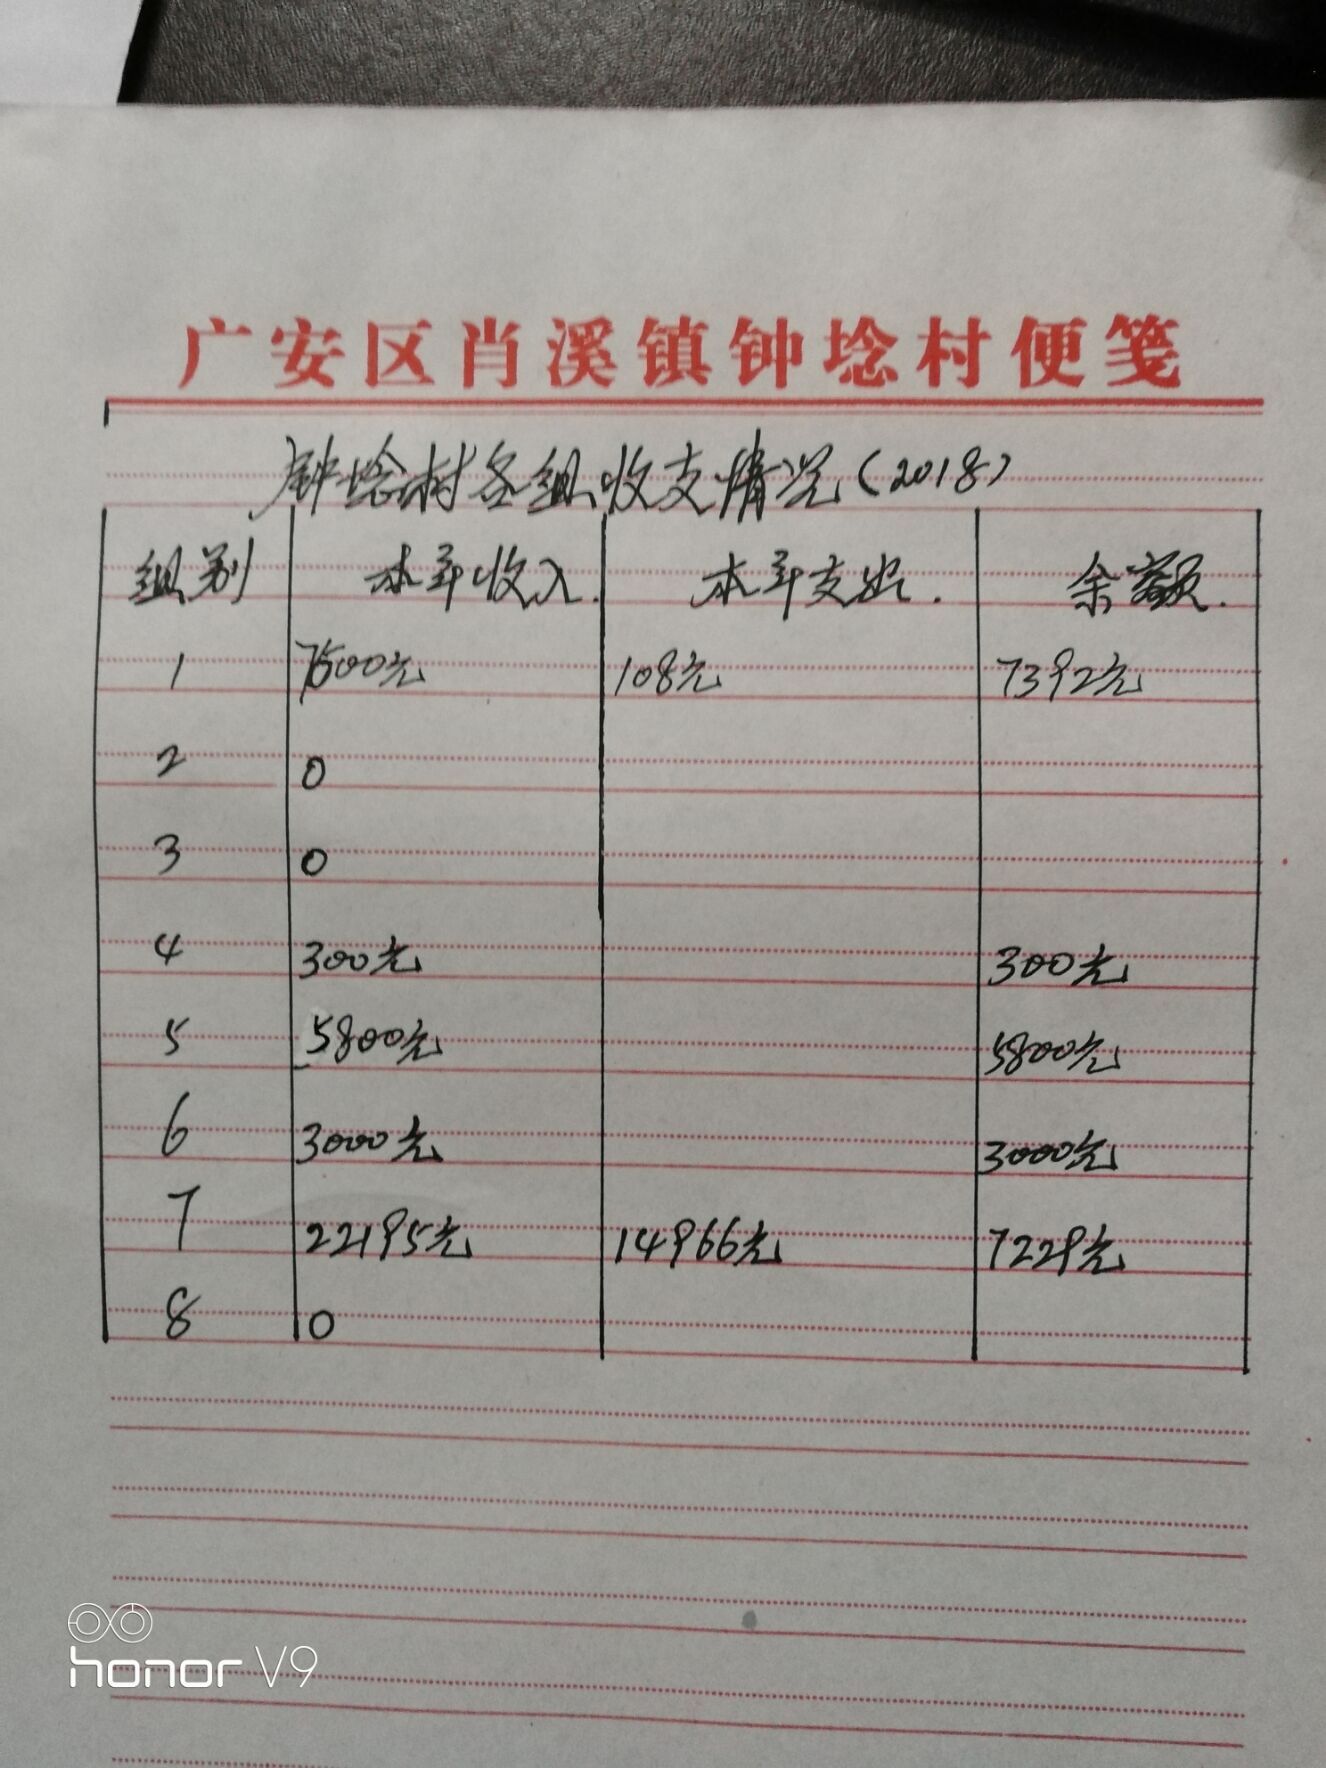 广安区肖溪镇钟埝村便笺
钟埝村各组收支情况(2018)
组别 本年收入. 本年支出. 余额.
1 7500元 108元 7392元
2 0
3 0
4 300元 300元
5 5800元 5800元
6 3000元 3000元
7 22195元 14966元 7229元
8 0
honor V9